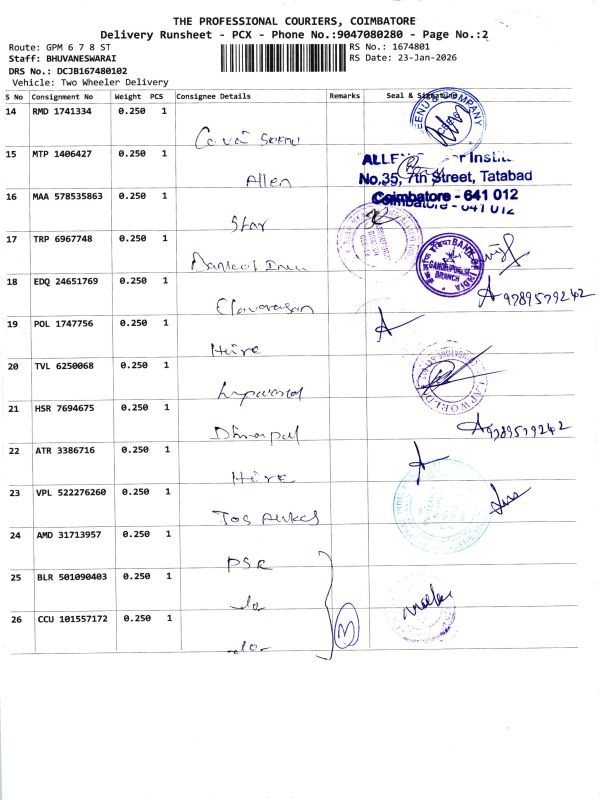 THE PROFESSIONAL COURIERS, COIMBATORE
Delivery Runsheet - PCX - Phone No.:9047080280 - Page No.:2
Route: GPM 6 7 8 ST
RS No.: 1674801
Staff: BHUVANESWARAI
RS Date: 23-Jan-2026
DRS No.: DCJB167480102
Vehicle: Two Wheeler Delivery
S No Consignment No Weight PCS Consignee Details Remarks Seal & Signature
14 RMD 1741334 0.250 1
15 MTP 1406427 0.250 1
Allen
No.35, 7th Street, Tatabad
Coimbatore - 641 012
16 MAA 578535863 0.250 1
Star
17 TRP 6967748 0.250 1
BANK OF INDIA
GANDHIPURAM
BRANCH
18 EDQ 24651769 0.250 1
9789579242
19 POL 1747756 0.250 1
Hire
20 TVL 6250068 0.250 1
21 HSR 7694675 0.250 1
Dhanapal
9789579242
22 ATR 3386716 0.250 1
Hire
23 VPL 522276260 0.250 1
24 AMD 31713957 0.250 1
PSR
25 BLR 501090403 0.250 1
do
26 CCU 101557172 0.250 1
do